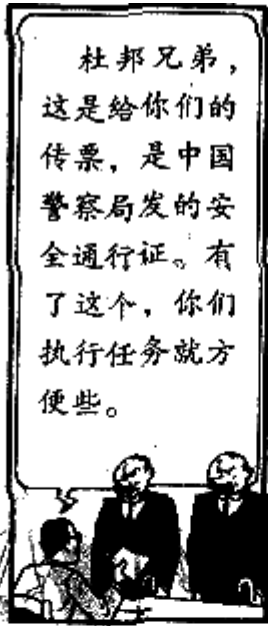 杜邦兄弟，
这是给你们的
传票，是中国
警察局发的安
全通行证。有
了这个，你们
执行任务就方
便些。